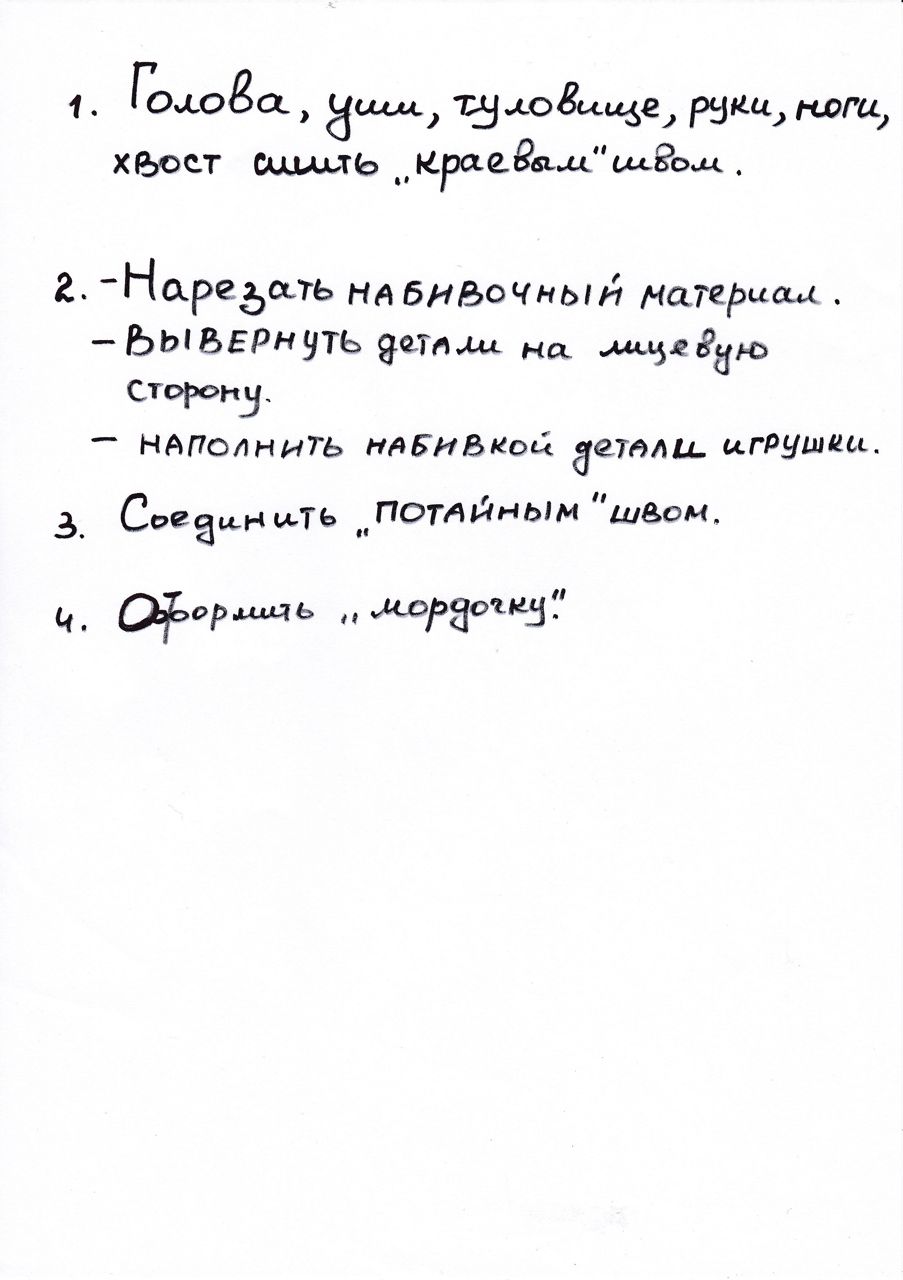 1. Голова, уши, туловище, руки, ноги,
хвост сшить „краевым" швом.
2. - Нарезать НАБИВОЧНЫЙ материал.
- ВЫВЕРНУТЬ детали на лицевую
сторону.
- НАПОЛНИТЬ НАБИВКОЙ детали игрушки.
3. Соединить „ПОТАЙНЫМ" швом.
4. Оформить „мордочку".